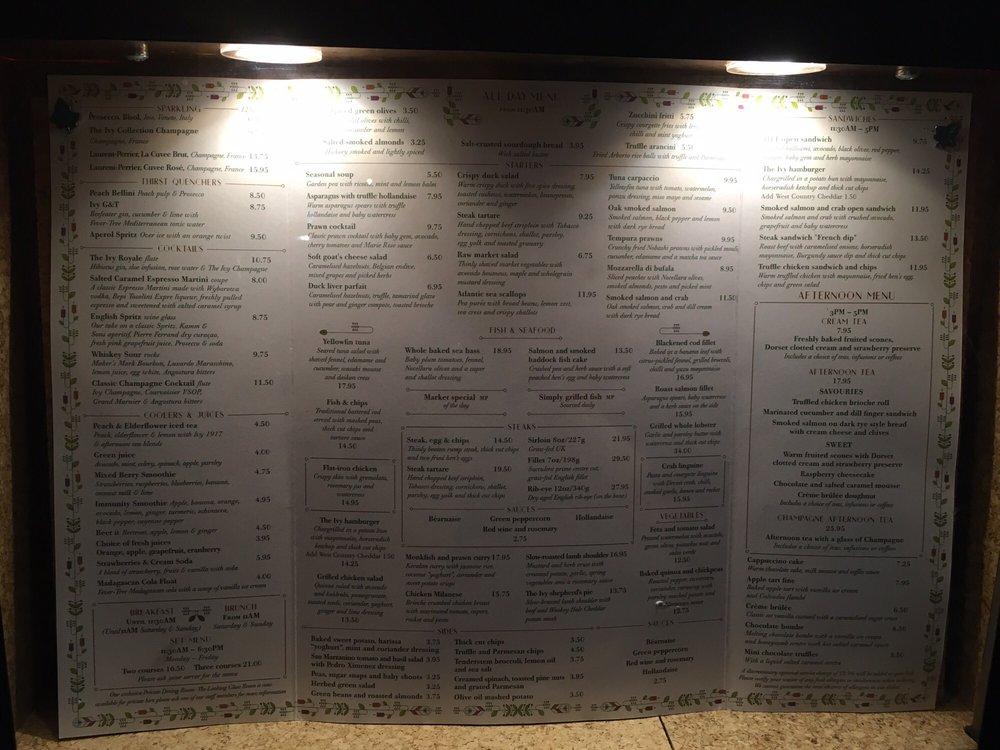 SPARKLING
Prosecco, Bisol, Jeio, Veneto, Italy
The Ivy Collection Champagne
Champagne, France
Laurent-Perrier, La Cuvee Brut, Champagne, France 13.75
Laurent-Perrier, Cuvee Rosé, Champagne, France 15.95
THIRST QUENCHERS
Peach Bellini Peach pulp & Prosecco 8.50
Ivy G&T 8.75
Beefeater gin, cucumber & lime with
Fever-Tree Mediterranean tonic water
Aperol Spritz Over ice with an orange twist 9.50
COCKTAILS
The Ivy Royale flute 10.75
Hibiscus gin, sloe infusion, rose water & The Ivy Champagne
Salted Caramel Espresso Martini coupe 8.00
A classic Espresso Martini made with Wyborowa
vodka, Bepi Tosolini Expre liqueur, freshly pulled
espresso and sweetened with salted caramel syrup
English Spritz wine glass 8.75
Our take on a classic Spritz. Kamm &
Sons aperitif, Pierre Ferrand dry curaçao,
fresh pink grapefruit juice, Prosecco & soda
Whiskey Sour rocks 9.75
Maker's Mark Bourbon, Luxardo Maraschino,
lemon juice, egg white, Angostura bitters
Classic Champagne Cocktail flute 11.50
Ivy Champagne, Courvoisier VSOP,
Grand Marnier & Angostura bitters
COOLERS & JUICES
Peach & Elderflower iced tea 4.50
Peach, elderflower & lemon with Ivy 1917
& afternoon tea blends
Green juice 4.00
Avocado, mint, celery, spinach, apple, parsley
Mixed Berry Smoothie 4.75
Strawberries, raspberries, blueberries, banana,
coconut milk & lime
Immunity Smoothie Apple, banana, orange, 4.95
avocado, lemon, ginger, turmeric, echinacea,
black pepper, cayenne pepper
Beet it Beetroot, apple, lemon & ginger 4.50
Choice of fresh juices 3.95
Orange, apple, grapefruit, cranberry
Strawberries & Cream Soda 5.95
A blend of strawberry, fruits & vanilla with soda
Madagascan Cola Float 4.00
Fever-Tree Madagascan cola with a scoop of vanilla ice cream
BREAKFAST
Until 11.30AM
(Until 11AM Saturday & Sunday)
BRUNCH
From 11AM
Saturday & Sunday
SET MENU
11.30AM – 6.30PM
Monday – Friday
Two courses 16.50 Three courses 21.00
Please ask your server for the menu
ALL DAY MENU
FROM 11.30AM
green olives 3.50
olives with chilli,
and lemon
Salted smoked almonds 3.25
Hickory smoked and lightly spiced
Salt-crusted sourdough bread 3.95
With salted butter
Zucchini fritti 5.75
Crispy courgette fries with
chilli and mint yoghurt
Truffle arancini 5.50
Fried Arborio rice balls with truffle and Parmesan
STARTERS
Seasonal soup 5.50
Garden pea with ricotta, mint and lemon balm
Asparagus with truffle hollandaise 7.95
Warm asparagus spears with truffle
hollandaise and baby watercress
Prawn cocktail 9.75
Classic prawn cocktail with baby gem, avocado,
cherry tomatoes and Marie Rose sauce
Soft goat's cheese salad 6.50
Caramelised hazelnuts, Belgian endive,
mixed grapes and picked herbs
Duck liver parfait 6.95
Caramelised hazelnuts, truffle, tamarind glaze
with pear and ginger compote, toasted brioche
Crispy duck salad 7.95
Warm crispy duck with five spice dressing,
toasted cashews, watermelon, beansprouts,
coriander and ginger
Steak tartare 9.25
Hand chopped beef striploin with Tabasco
dressing, cornichons, shallot, parsley,
egg yolk and toasted granary
Raw market salad 6.75
Thinly shaved market vegetables with
avocado houmous, maple and wholegrain
mustard dressing
Atlantic sea scallops 11.95
Pea purée with broad beans, lemon zest,
sea cress and crispy shallots
Tuna carpaccio 9.95
Yellowfin tuna with tomato, watermelon,
ponzu dressing, miso mayo and sesame
Oak smoked salmon 9.50
Smoked salmon, black pepper and lemon
with dark rye bread
Tempura prawns 9.95
Crunchy fried Nobashi prawns with pickled mouli,
cucumber, edamame and a matcha tea sauce
Mozzarella di bufala 8.95
Sliced peaches with Nocellara olives,
smoked almonds, pesto and picked mint
Smoked salmon and crab 11.50
Oak smoked salmon, crab and dill cream
with dark rye bread
FISH & SEAFOOD
Yellowfin tuna
Seared tuna salad with
shaved fennel, edamame and
cucumber, wasabi mousse
and daikon cress
17.95
Fish & chips
Traditional battered cod
served with mashed peas,
thick cut chips and
tartare sauce
14.50
Whole baked sea bass 18.95
Baby plum tomatoes, fennel,
Nocellara olives and a caper
and shallot dressing
Salmon and smoked
haddock fish cake 13.50
Crushed pea and herb sauce with a soft
poached hen's egg and baby watercress
Market special MP
of the day
Simply grilled fish MP
Sourced daily
Blackened cod fillet
Baked in a banana leaf with
citrus-pickled fennel, grilled broccoli,
chilli and yuzu mayonnaise
16.95
Roast salmon fillet
Asparagus spears, baby watercress
and a herb sauce on the side
15.95
Grilled whole lobster
Garlic and parsley butter with
watercress and thick cut chips
34.00
Crab linguine
Pasta and courgette linguine
with Dorset crab, chilli,
smoked garlic, lemon and rocket
15.95
STEAKS
Steak, egg & chips 14.50
Thinly beaten rump steak, thick cut chips
and two fried hen's eggs
Steak tartare 19.50
Hand chopped beef striploin,
Tabasco dressing, cornichons, shallot,
parsley, egg yolk and thick cut chips
Sirloin 8oz/227g 21.95
Grass-fed UK
Fillet 7oz/198g 29.50
Succulent prime centre cut,
grass-fed English fillet
Rib-eye 12oz/340g 27.95
Dry aged English rib-eye (on the bone)
SAUCES
Béarnaise Green peppercorn Hollandaise
Red wine and rosemary
2.75
Flat-iron chicken
Crispy skin with gremolata,
rosemary jus and
watercress
14.95
The Ivy hamburger
Chargrilled in a potato bun
with mayonnaise, horseradish
ketchup and thick cut chips
Add West Country Cheddar 1.50
14.25
Grilled chicken salad
Quinoa mixed with avocado
and kohlrabi, pomegranate,
toasted seeds, coriander, yoghurt,
ginger and lime dressing
13.50
Monkfish and prawn curry 17.95
Keralan curry with jasmine rice,
coconut "yoghurt", coriander and
sweet potato crisps
Chicken Milanese 15.75
Brioche crumbed chicken breast
with marinated tomato, capers,
rocket and pesto
Slow-roasted lamb shoulder 16.95
Mustard and herb crust with
creamed potato, garlic, spring
vegetables and a rosemary sauce
The Ivy shepherd's pie 13.75
Slow-braised lamb shoulder with
beef and Wookey Hole Cheddar
potato mash
VEGETABLES
Feta and tomato salad
Peeled watermelon with avocado,
green olives, pistachio nuts and
salsa verde
12.50
Baked quinoa and chickpeas
12.75
SIDES
Baked sweet potato, harissa 3.75
"yoghurt", mint and coriander dressing
San Marzanino tomato and basil salad 3.95
with Pedro Ximenez dressing
Peas, sugar snaps and baby shoots 3.25
Herbed green salad 3.25
Green beans and roasted almonds 3.75
Thick cut chips 3.50
Truffle and Parmesan chips 4.50
Tenderstem broccoli, lemon oil 3.75
and sea salt
Creamed spinach, toasted pine nuts 3.95
and grated Parmesan
Olive oil mashed potato 3.50
SAUCES
Béarnaise
Green peppercorn
Red wine and rosemary
Hollandaise
2.75
SANDWICHES
11.30AM – 5PM
open sandwich 9.75
avocado, black olives, red pepper,
baby gem and herb mayonnaise
The Ivy hamburger 14.25
Chargrilled in a potato bun with mayonnaise,
horseradish ketchup and thick cut chips
Add West Country Cheddar 1.50
Smoked salmon and crab open sandwich 11.95
Smoked salmon and crab with crushed avocado,
grapefruit and baby watercress
Steak sandwich "French dip" 13.50
Roast beef with caramelised onions, horseradish
mayonnaise, Burgundy sauce dip and thick cut chips
Truffle chicken sandwich and chips 11.95
Warm truffled chicken with mayonnaise, fried hen's egg,
chips and green salad
AFTERNOON MENU
3PM – 5PM
CREAM TEA
7.95
Freshly baked fruited scones,
Dorset clotted cream and strawberry preserve
Includes a choice of teas, infusions or coffees
AFTERNOON TEA
17.95
SAVOURIES
Truffled chicken brioche roll
Marinated cucumber and dill finger sandwich
Smoked salmon on dark rye style bread
with cream cheese and chives
SWEET
Warm fruited scones with Dorset
clotted cream and strawberry preserve
Raspberry cheesecake
Chocolate and salted caramel mousse
Crème brûlée doughnut
Includes a choice of teas, infusions or coffees
CHAMPAGNE AFTERNOON TEA
25.95
Afternoon tea with a glass of Champagne
Includes a choice of teas, infusions or coffees
Cappuccino cake 7.25
Warm chocolate cake, milk mousse and coffee sauce
Apple tart fine 7.95
Baked apple tart with vanilla ice cream
and Calvados flambé
Crème brûlée 6.50
Classic set vanilla custard with a caramelised sugar crust
Chocolate bombe 8.50
Melting chocolate bombe with a vanilla ice cream
and honeycomb centre with hot salted caramel sauce
Mini chocolate truffles 3.50
With a liquid salted caramel centre